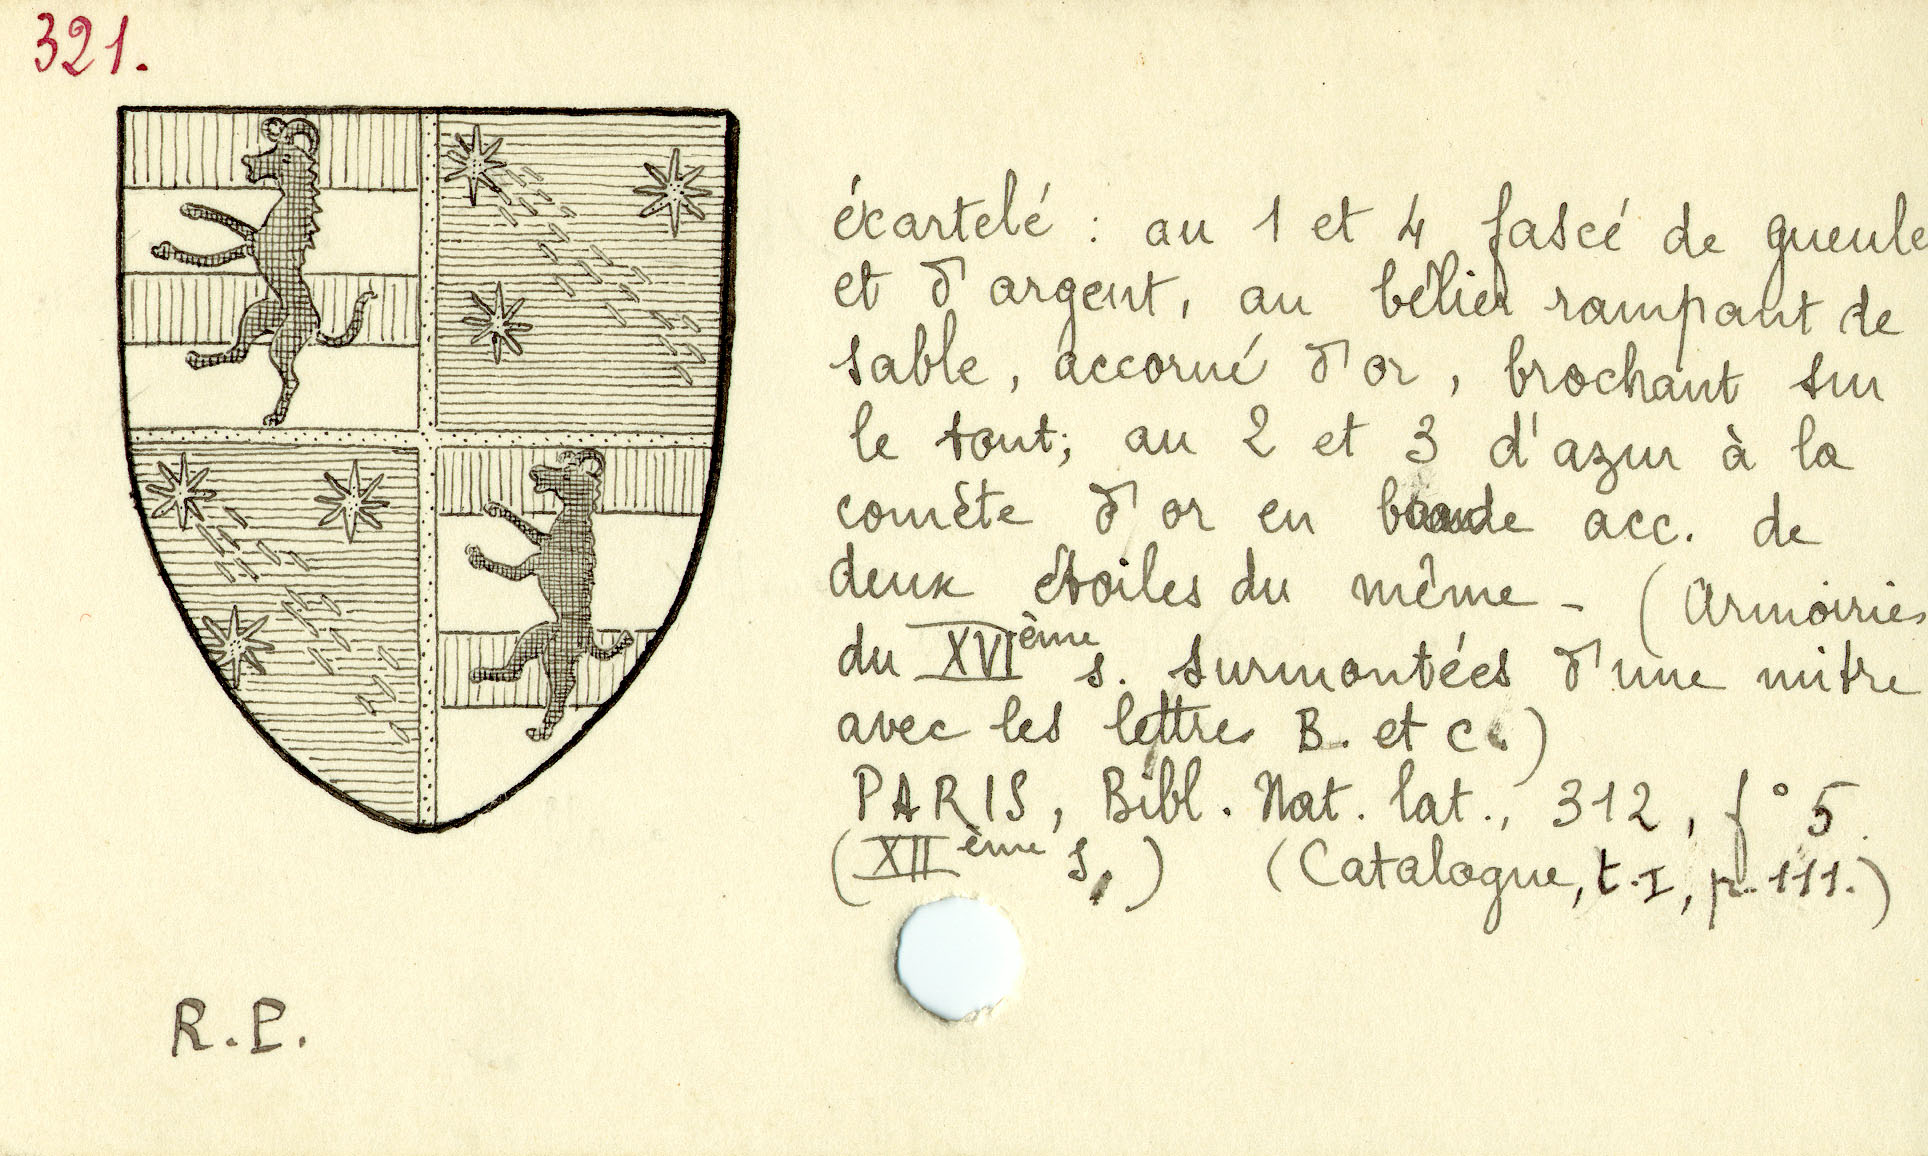 321.
éxartelé : au 1 et 4 fascé de gueule
et d'argent, au bélier rampant de
sable, accorné d'or, brochant sur
le tout; au 2 et 3 d'azur à la
comète d'or en bande acc. de
deux étoiles du même - (Armoiries
du XVIème s. surmontées d'une mitre
avec les lettres B. et C.)
PARIS, Bibl. Nat. lat., 312, f° 5.
(XIIème s.) (Catalogue, t. I, p. 111.)
R.P.